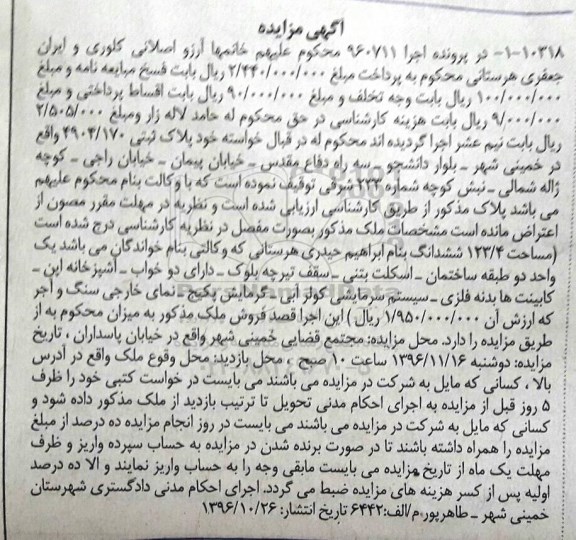 آگهی مزایده
۱۰۳۱۸-۱- در پرونده اجرا ۹۶۰۷۱۱ محکوم علیهم خانمها آرزو اصلانی کلوری و ایران
جعفری هرستانی محکوم به پرداخت مبلغ ۲/۲۴۰/۰۰۰/۰۰۰ ریال بابت فسخ مبایعه نامه و مبلغ
۱۰۰/۰۰۰/۰۰۰ ریال بابت وجه تخلف و مبلغ ۹۰/۰۰۰/۰۰۰ ریال بابت اقساط پرداختی و مبلغ
۹/۰۰۰/۰۰۰ ریال بابت هزینه کارشناسی در حق محکوم له حامد لاله زار ومبلغ ۲/۵۰۵/۰۰۰
ریال بابت نیم عشر اجرا گردیده اند محکوم له در قبال خواسته خود پلاک ثبتی ۴۹۰۴/۱۷۰ واقع
در خمینی شهر ـ بلوار دانشجو ـ سه راه دفاع مقدس ـ خیابان پیمان ـ خیابان راجی ـ کوچه
ژاله شمالی ـ نبش کوچه شماره ۲۲ شرقی توقیف نموده است که با وکالت بنام محکوم علیهم
می باشد پلاک مذکور از طریق کارشناسی ارزیابی شده است و نظریه در مهلت مقرر مصون از
اعتراض مانده است مشخصات ملک مذکور بصورت مفصل در نظریه کارشناسی درج شده است
(مساحت ۱۲۳/۴ ششدانگ بنام ابراهیم حیدری هرستانی که وکالتی بنام خواندگان می باشد یک
واحد دو طبقه ساختمان ـ اسکلت بتنی ـ سقف تیرچه بلوک ـ دارای دو خواب ـ آشپزخانه اپن ـ
کابینت ها بدنه فلزی ـ سیستم سرمایشی کولر آبی ـ گرمایش پکیج ـ نمای خارجی سنگ و آجر
که ارزش آن ۱/۹۵۰/۰۰۰/۰۰۰ ریال) این اجرا قصد فروش ملک مذکور به میزان محکوم به از
طریق مزایده را دارد. محل مزایده: مجتمع قضایی خمینی شهر واقع در خیابان پاسداران ، تاریخ
مزایده: دوشنبه ۱۳۹۶/۱۱/۱۶ ساعت ۱۰ صبح ، محل بازدید: محل وقوع ملک واقع در آدرس
بالا ، کسانی که مایل به شرکت در مزایده می باشند می بایست در خواست کتبی خود را ظرف
۵ روز قبل از مزایده به اجرای احکام مدنی تحویل تا ترتیب بازدید از ملک مذکور داده شود و
کسانی که مایل به شرکت در مزایده می باشند می بایست در روز انجام مزایده ده درصد از مبلغ
مزایده را همراه داشته باشند تا در صورت برنده شدن در مزایده به حساب سپرده واریز و ظرف
مهلت یک ماه از تاریخ مزایده می بایست مابقی وجه را به حساب واریز نمایند و الا ده درصد
اولیه پس از کسر هزینه های مزایده ضبط می گردد. اجرای احکام مدنی دادگستری شهرستان
خمینی شهر ـ طاهرپور م/الف:۶۴۴۲ تاریخ انتشار: ۱۳۹۶/۱۰/۲۶